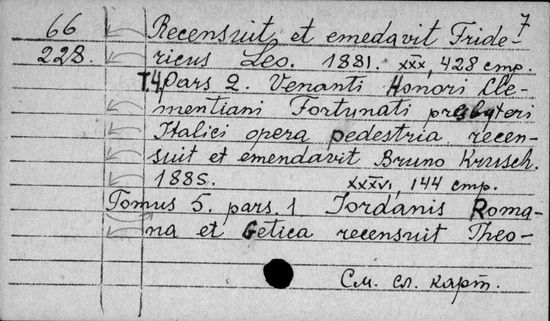 7
66 Recensuit et emedavit Fride-
228. ricus Leo. 1881. XXX, 428 стр.
T.4, Pars 2. Venanti Honori Cle-
mentiani Fortunati presbyteri
Italici opera pedestria recen-
suit et emendavit Bruno Krusch.
1885. XXXVI, 144 стр.
Tomus 5. pars. 1 Iordanis Roma-
na et Getica recensuit Theo-
См. сл. карт.